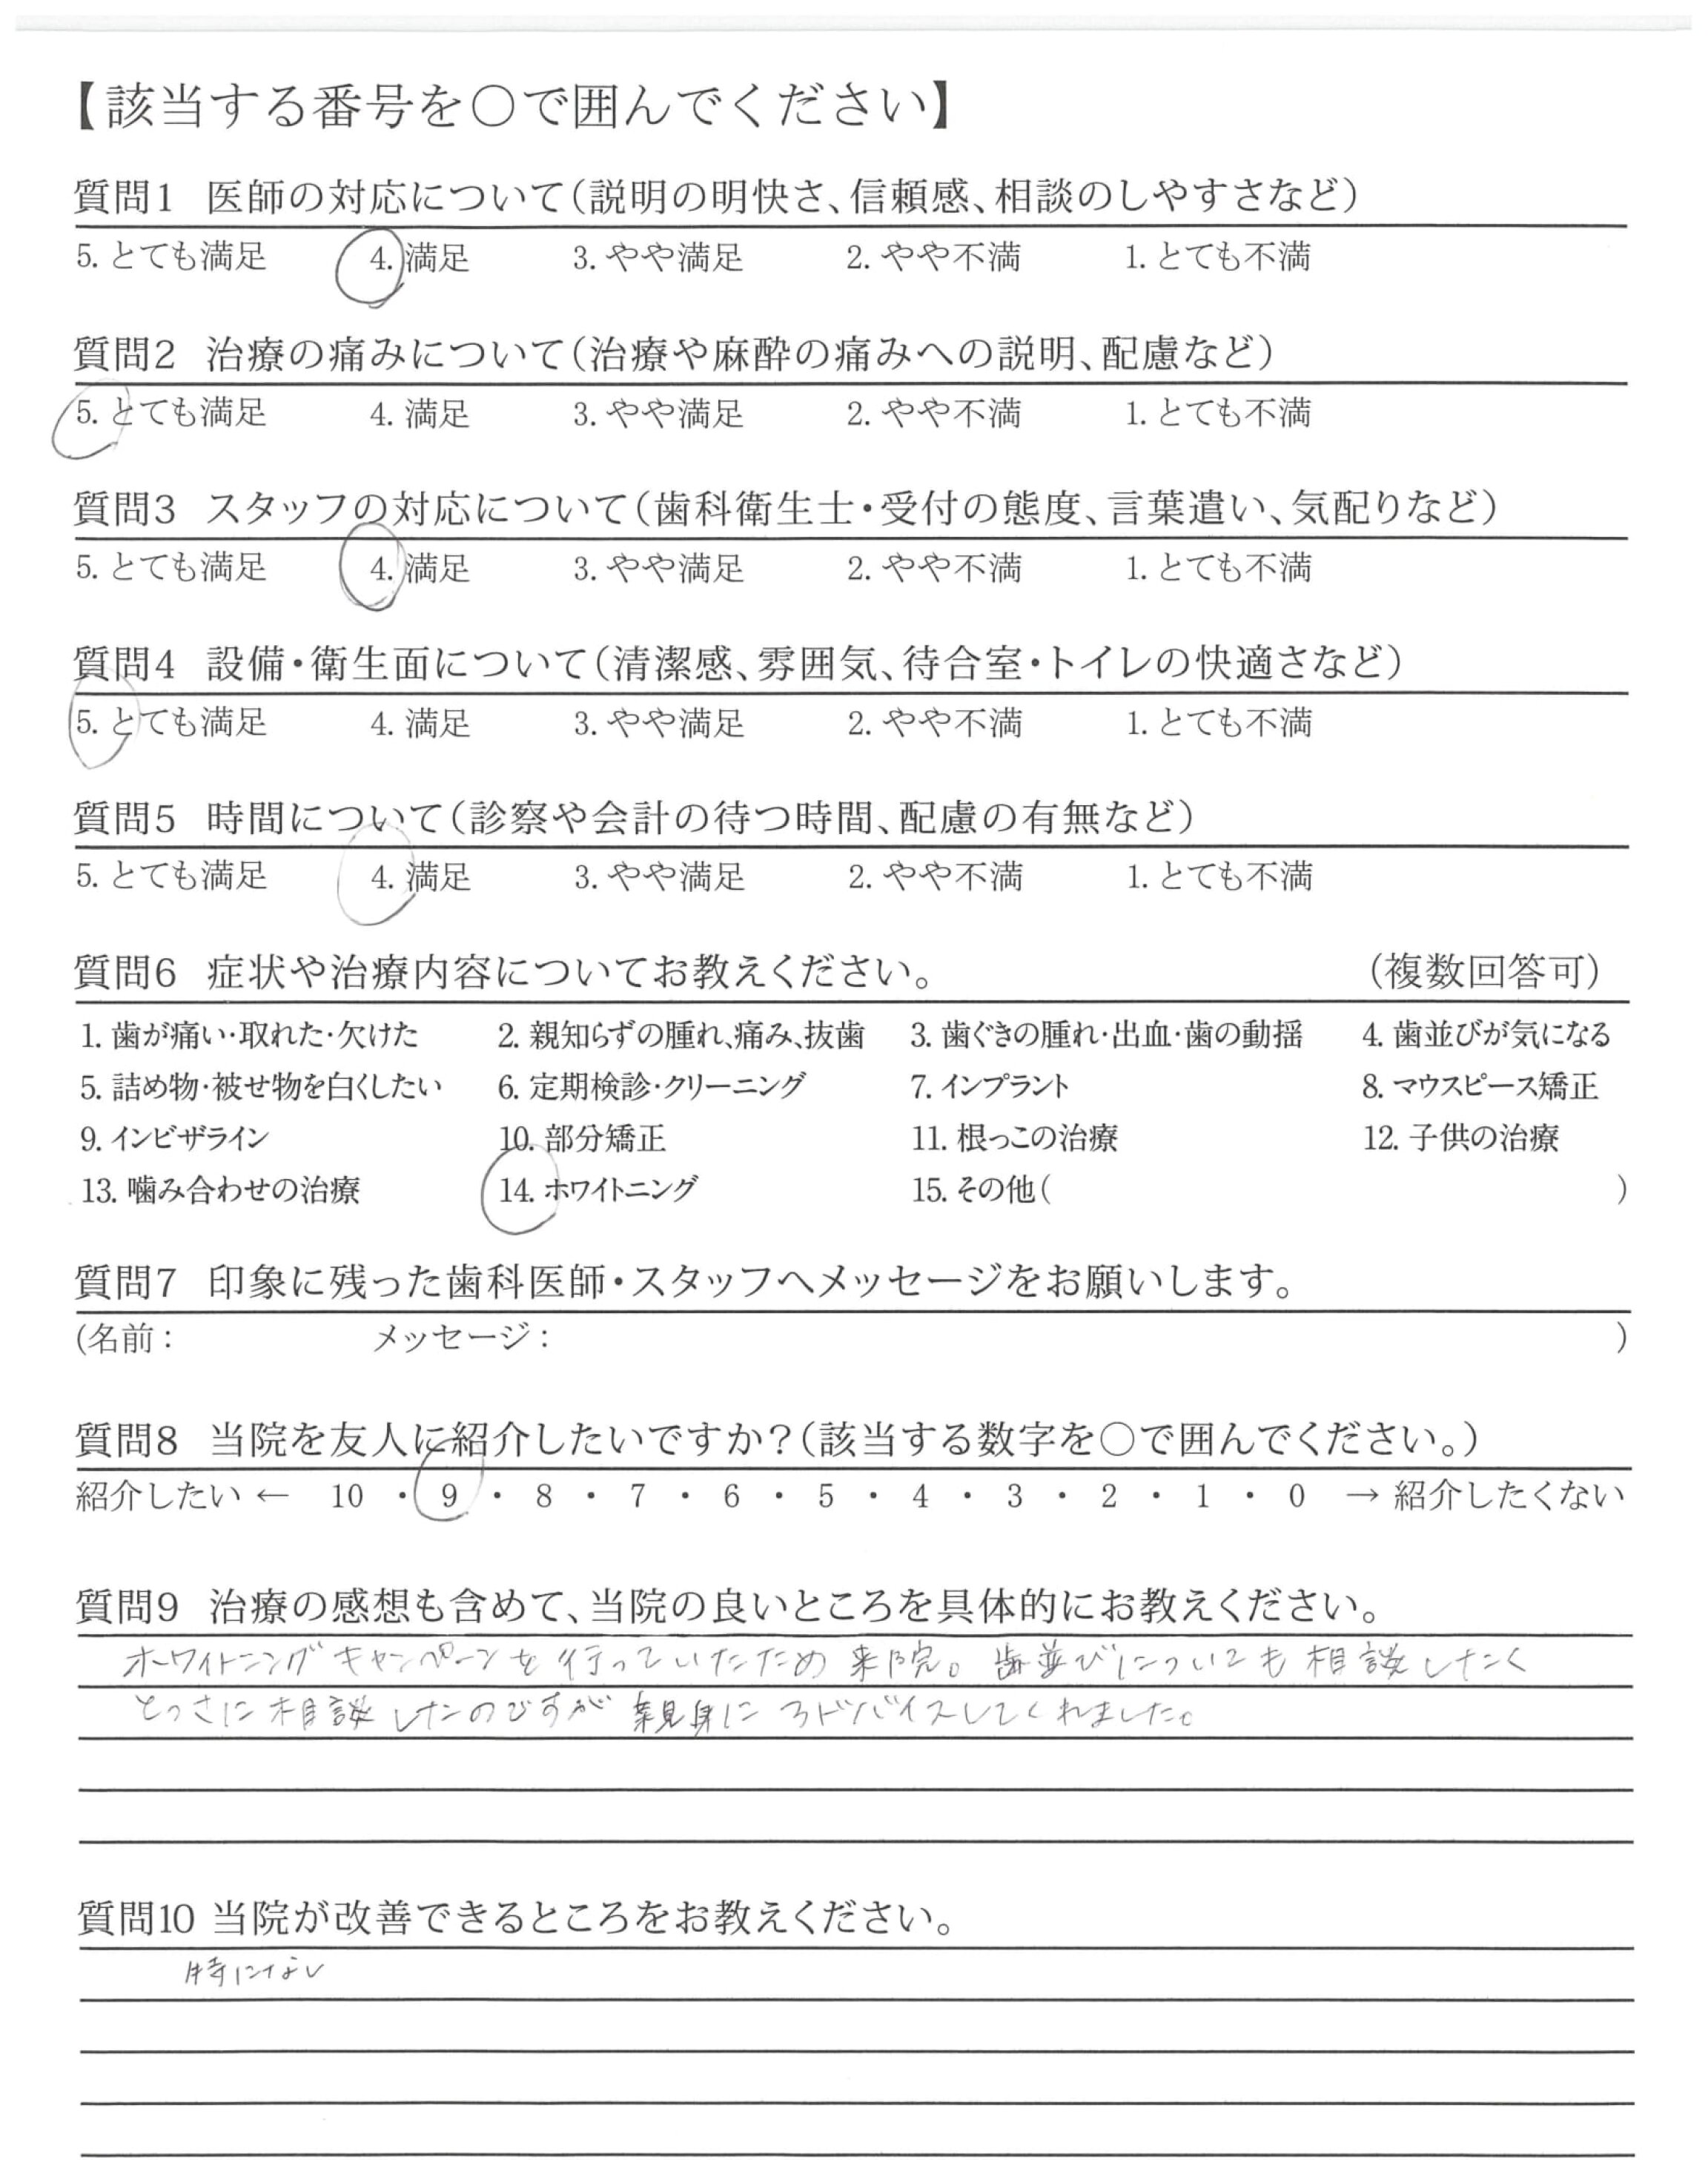 【該当する番号を○で囲んでください】
質問1 医師の対応について（説明の明快さ、信頼感、相談のしやすさなど）
5. とても満足 4. 満足 3. やや満足 2. やや不満 1. とても不満
質問2 治療の痛みについて（治療や麻酔の痛みへの説明、配慮など）
5. とても満足 4. 満足 3. やや満足 2. やや不満 1. とても不満
質問3 スタッフの対応について（歯科衛生士・受付の態度、言葉遣い、気配りなど）
5. とても満足 4. 満足 3. やや満足 2. やや不満 1. とても不満
質問4 設備・衛生面について（清潔感、雰囲気、待合室・トイレの快適さなど）
5. とても満足 4. 満足 3. やや満足 2. やや不満 1. とても不満
質問5 時間について（診察や会計の待つ時間、配慮の有無など）
5. とても満足 4. 満足 3. やや満足 2. やや不満 1. とても不満
質問6 症状や治療内容についてお教えください。 （複数回答可）
1. 歯が痛い・取れた・欠けた 2. 親知らずの腫れ、痛み、抜歯 3. 歯ぐきの腫れ・出血・歯の動揺 4. 歯並びが気になる
5. 詰め物・被せ物を白くしたい 6. 定期検診・クリーニング 7. インプラント 8. マウスピース矯正
9. インビザライン 10. 部分矯正 11. 根っこの治療 12. 子供の治療
13. 噛み合わせの治療 14. ホワイトニング 15. その他（ ）
質問7 印象に残った歯科医師・スタッフへメッセージをお願いします。
（名前： メッセージ： ）
質問8 当院を友人に紹介したいですか？（該当する数字を○で囲んでください。）
紹介したい ← 10 ・ 9 ・ 8 ・ 7 ・ 6 ・ 5 ・ 4 ・ 3 ・ 2 ・ 1 ・ 0 → 紹介したくない
質問9 治療の感想も含めて、当院の良いところを具体的にお教えください。
ホワイトニングキャンペーンを行っていたため来院。歯並びについても相談したく
とっさに相談したのですが親身にアドバイスしてくれました。
質問10 当院が改善できるところをお教えください。
特になし